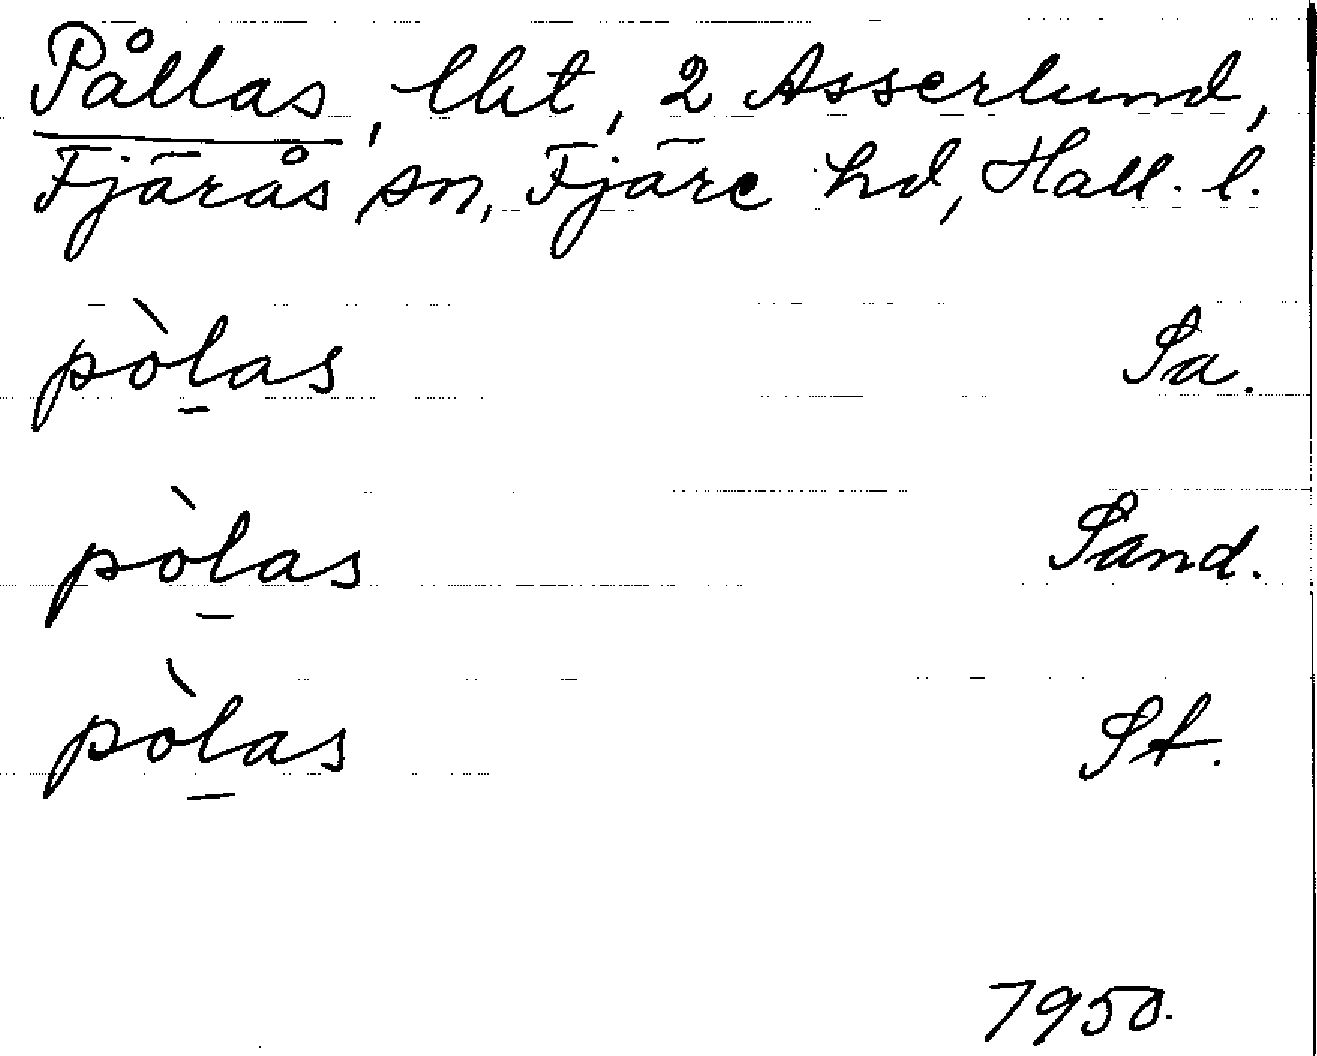 Pållas, lht, 2 Asserlund,
Fjärås sn, Fjäre hd, Hall. l.
pòl̠as Sa.
pòl̠as Sand.
pòl̠as St.
7950.